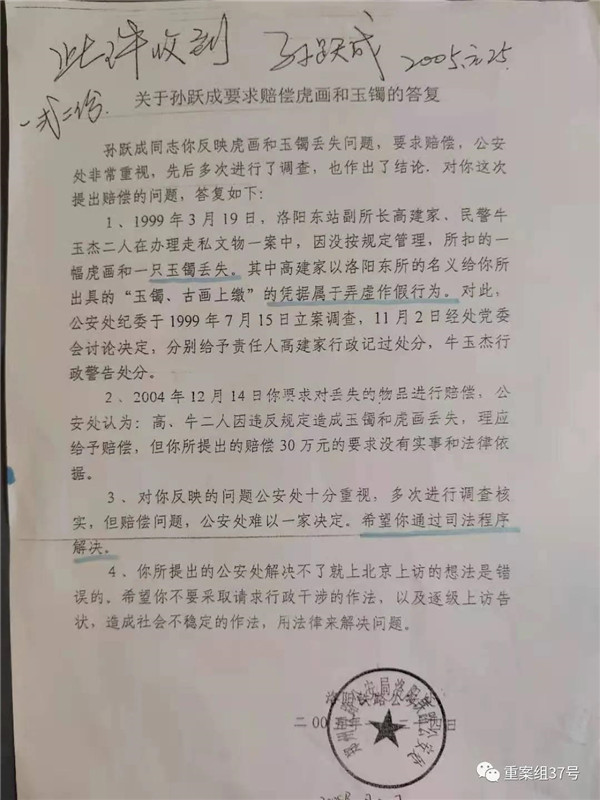 此件收到 孙跃成 2005.元25.
一式二份.
关于孙跃成要求赔偿虎画和玉镯的答复
孙跃成同志你反映虎画和玉镯丢失问题，要求赔偿，公安
处非常重视，先后多次进行了调查，也作出了结论．对你这次
提出赔偿的问题，答复如下：
1、1999年3月19日，洛阳东站副所长高建家、民警牛
玉杰二人在办理走私文物一案中，因没按规定管理，所扣的一
幅虎画和一只玉镯丢失。其中高建家以洛阳东所的名义给你所
出具的“玉镯、古画上缴”的凭据属于弄虚作假行为。对此，
公安处纪委于1999年7月15日立案调查，11月2日经处党委
会讨论决定，分别给予责任人高建家行政记过处分，牛玉杰行
政警告处分。
2、2004年12月14日你要求对丢失的物品进行赔偿，公
安处认为：高、牛二人因违反规定造成玉镯和虎画丢失，理应
给予赔偿，但你所提出的赔偿30万元的要求没有实事和法律依
据。
3、对你反映的问题公安处十分重视，多次进行调查核
实，但赔偿问题，公安处难以一家决定。希望你通过司法程序
解决。
4、你所提出的公安处解决不了就上北京上访的想法是错
误的。希望你不要采取请求行政干涉的作法，以及逐级上访告
状，造成社会不稳定的作法，用法律来解决问题。
重案组37号